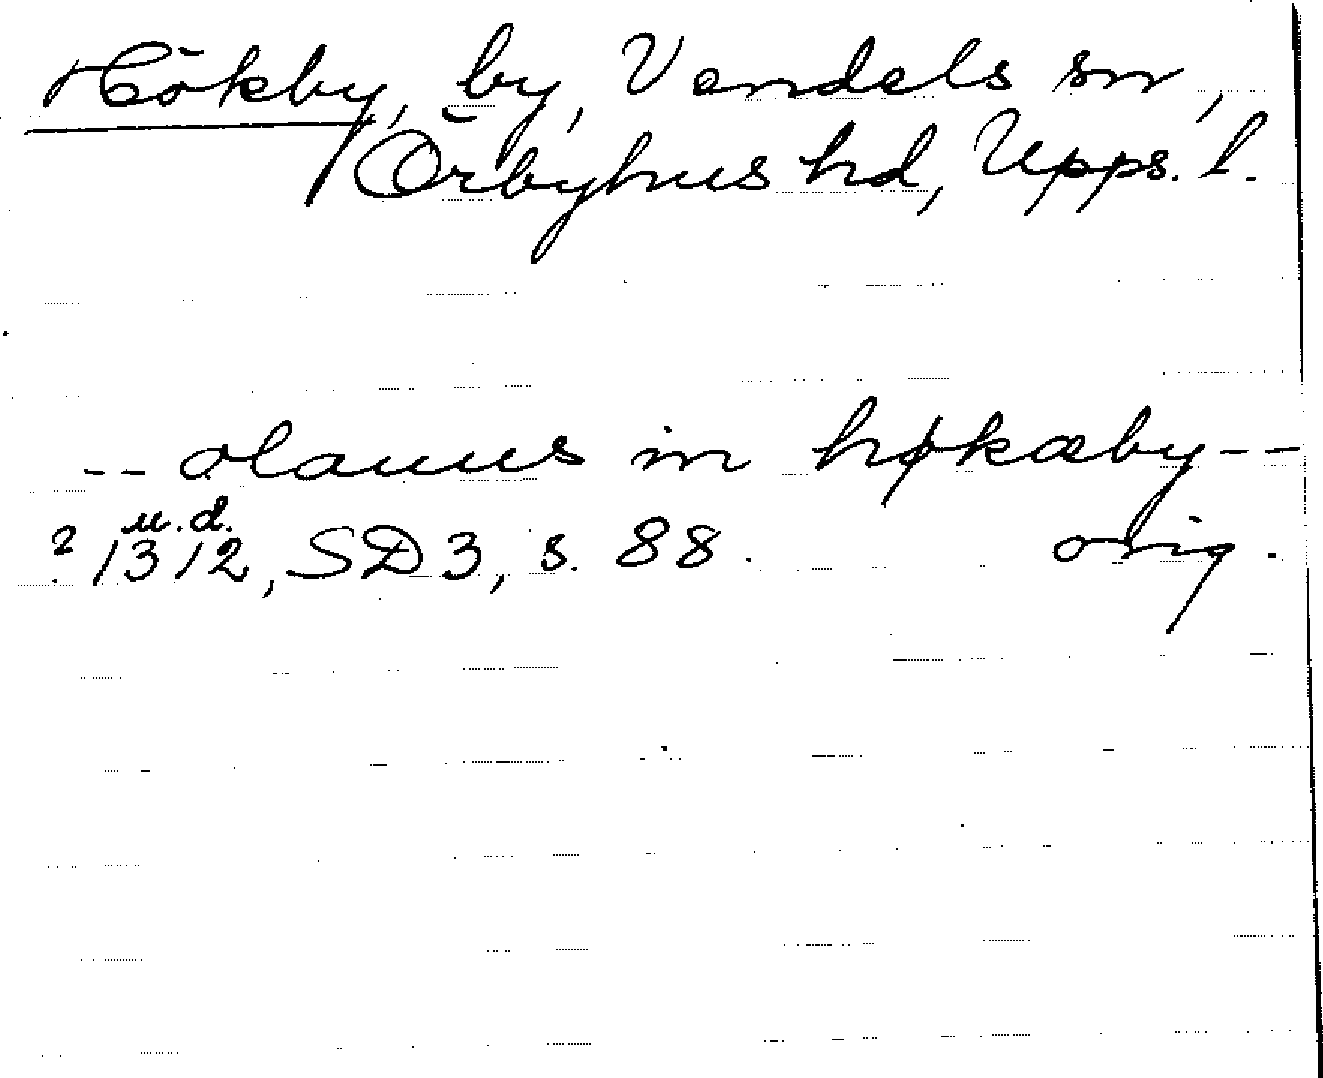 Hökby, by, Vendels sn,
Örbyhus hd, Upps. l.
-- olauus in høkæby --
u.d.
? 1312, SD 3, s. 88. orig.